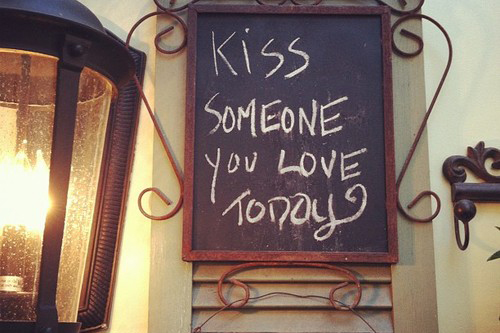 Kiss
SOMEONE
YOU LOVE
TODAY